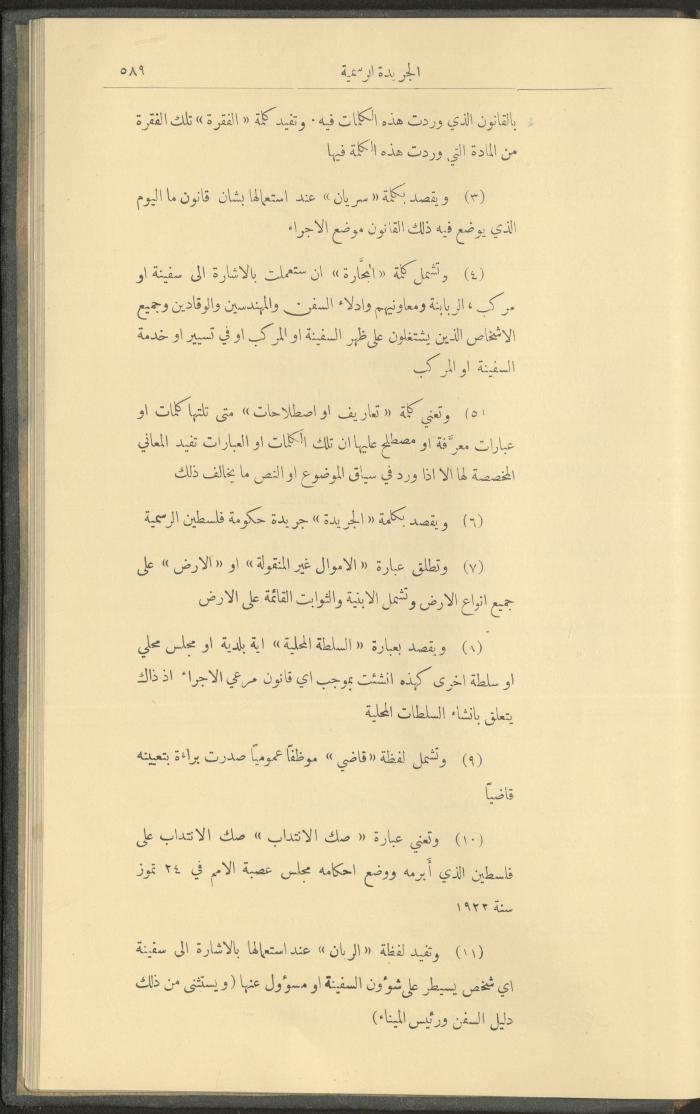 الجريدة الرسمية ٥٨٩
بالقانون الذي وردت هذه الكلمات فيه. وتفيد كلمة «الفقرة» تلك الفقرة
من المادة التي وردت هذه الكلمة فيها
(٣) ويقصد بكلمة «سريان» عند استعمالها بشان قانون ما اليوم
الذي يوضع فيه ذلك القانون موضع الاجراء
(٤) وتشمل كلمة «البحَّارة» ان ستعملت بالاشارة الى سفينة او
مركب، الربابنة ومعاونيهم وادلاء السفن والمهندسين والوقادين وجميع
الاشخاص الذين يشتغلون على ظهر السفينة او المركب او في تسيير او خدمة
السفينة او المركب
(٥) وتعني كلمة «تعاريف او اصطلاحات» متى تلتها كلمات او
عبارات معرَّفة او مصطلح عليها ان تلك الكلمات او العبارات تفيد المعاني
المخصصة لها الا اذا ورد في سياق الموضوع او النص ما يخالف ذلك
(٦) ويقصد بكلمة «الجريدة» جريدة حكومة فلسطين الرسمية
(٧) وتطلق عبارة «الاموال غير المنقولة» او «الارض» على
جميع انواع الارض وتشمل الابنية والثوابت القائمة على الارض
(٨) ويقصد بعبارة «السلطة المحلية» اية بلدية او مجلس محلي
او سلطة اخرى كهذه انشئت بموجب اي قانون مرعي الاجراء اذ ذاك
يتعلق بانشاء السلطات المحلية
(٩) وتشمل لفظة «قاضي» موظفاً عمومياً صدرت براءة بتعيينه
قاضياً
(١٠) وتعني عبارة «صك الانتداب» صك الانتداب على
فلسطين الذي أبرمه ووضع احكامه مجلس عصبة الامم في ٢٤ تموز
سنة ١٩٢٢
(١١) وتفيد لفظة «الربان» عند استعمالها بالاشارة الى سفينة
اي شخص يسيطر على شوؤن السفينة او مسوؤل عنها (ويستثنى من ذلك
دليل السفن ورئيس الميناء)